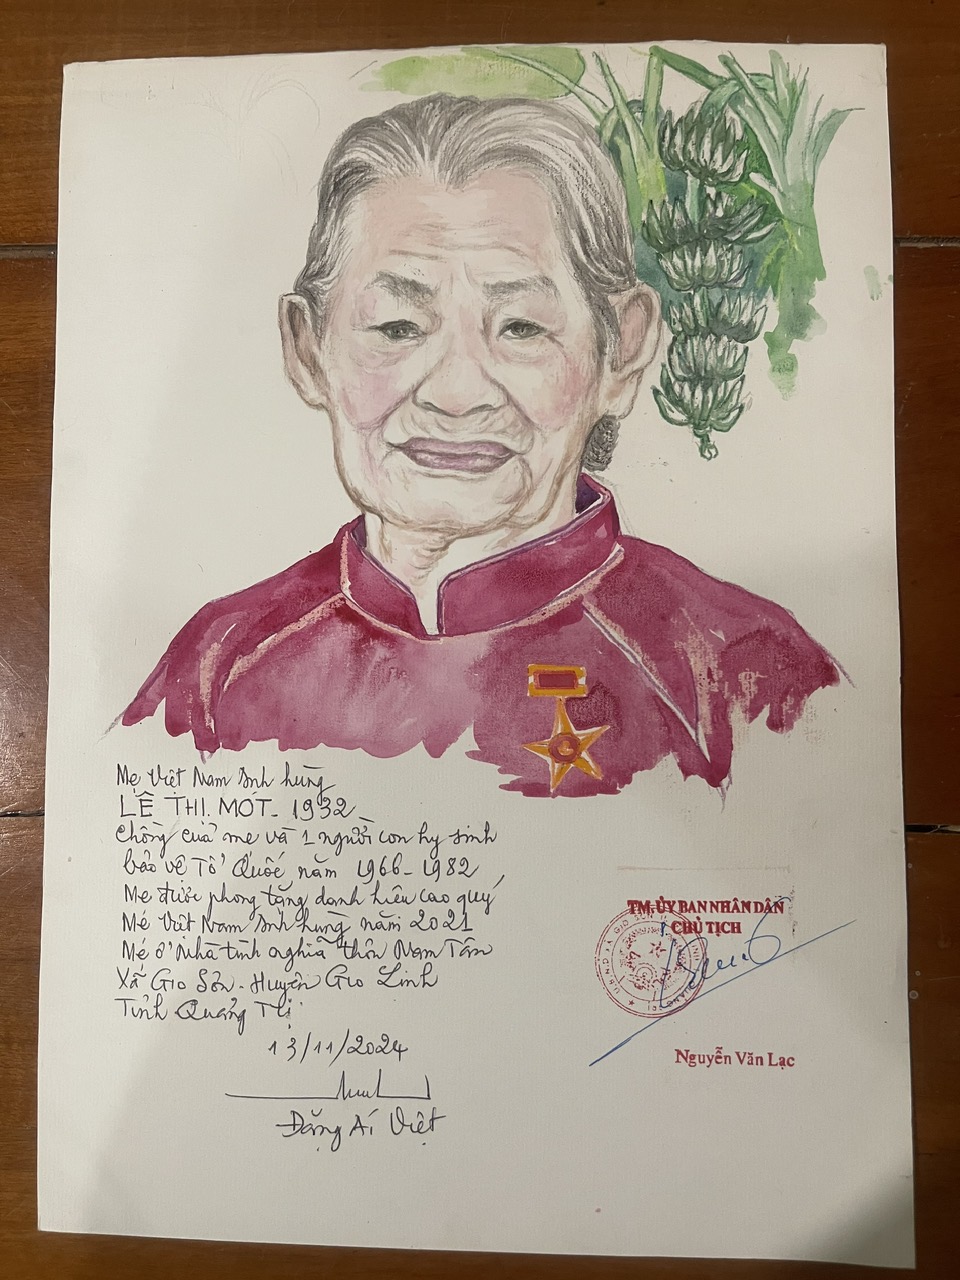 Mẹ Việt Nam Anh hùng
LÊ THỊ MÓT - 1932
Chồng của mẹ và 1 người con hy sinh
bảo vệ Tổ Quốc năm 1966 - 1982
Mẹ được phong tặng danh hiệu cao quý
Mẹ Việt Nam Anh hùng năm 2021
Mẹ ở Nhà tình nghĩa thôn Nam Tân
Xã Gio Sơn - Huyện Gio Linh
Tỉnh Quảng Trị
13/11/2024
Đặng Ái Việt
TM. ỦY BAN NHÂN DÂN
CHỦ TỊCH
Nguyễn Văn Lạc